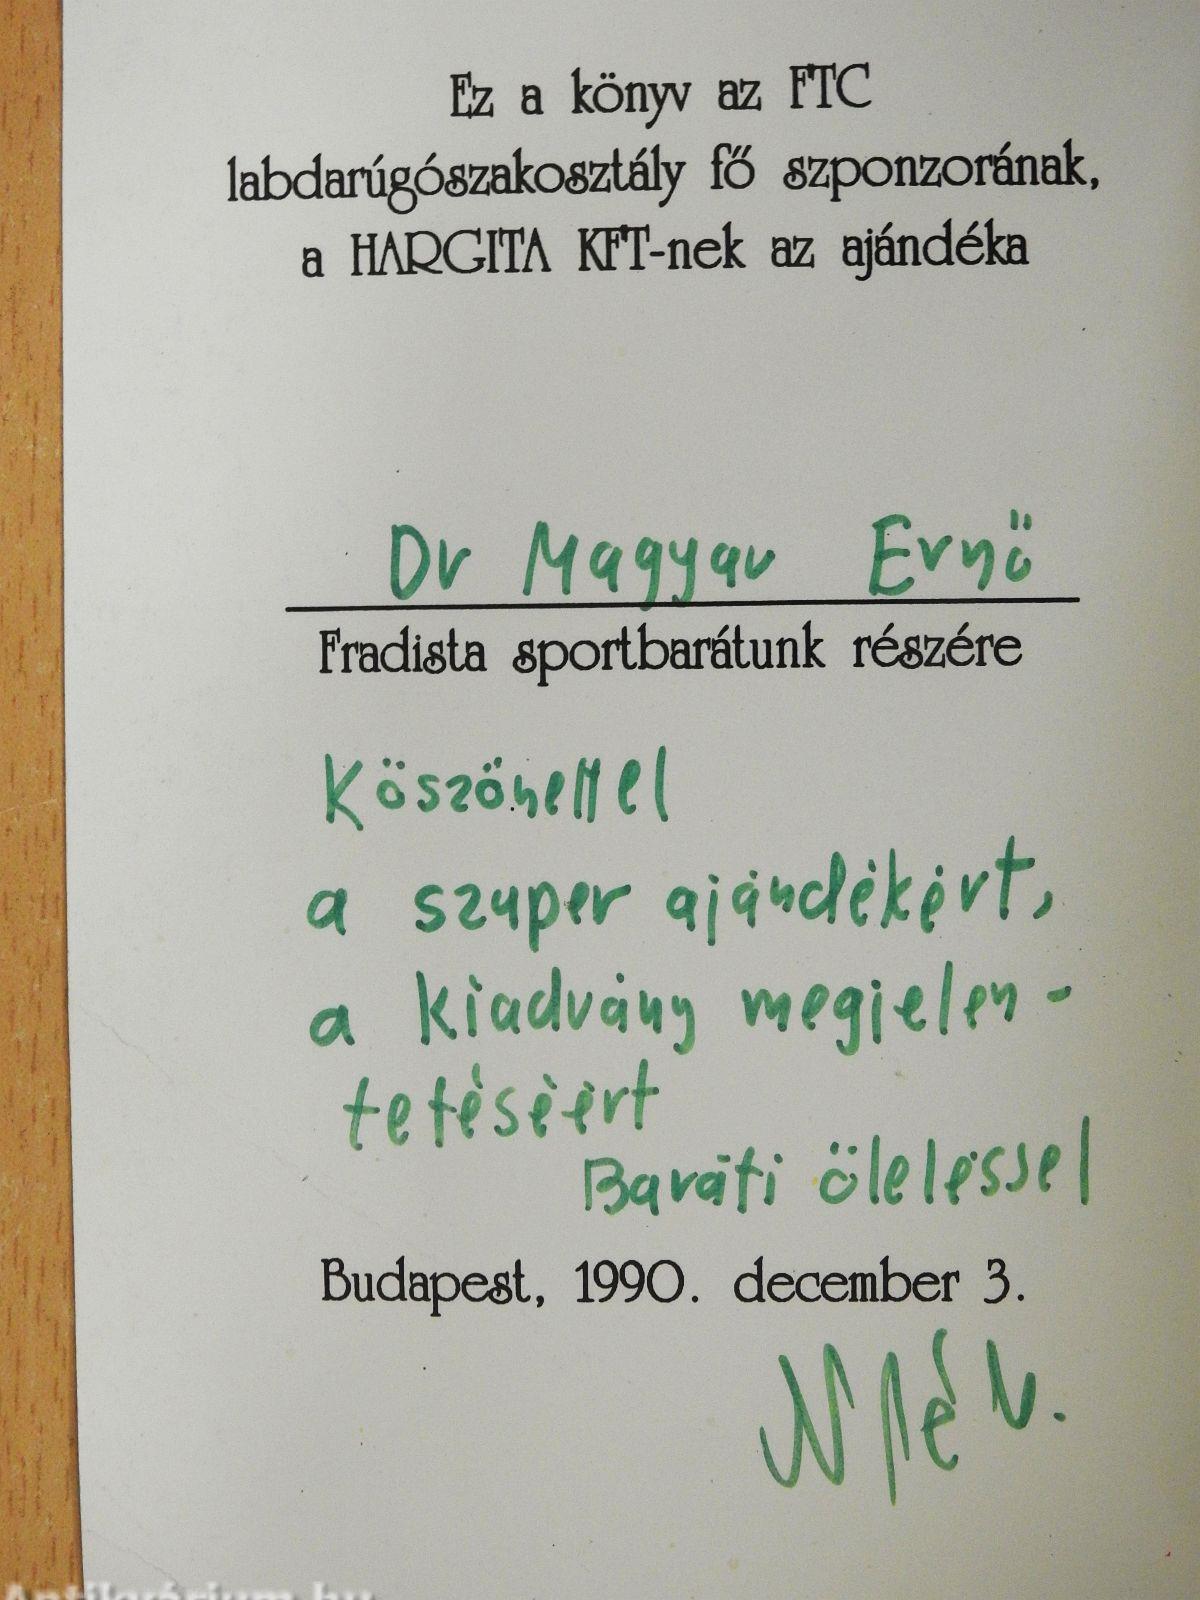 Ez a könyv az FTC
labdarúgószakosztály fő szponzorának,
a HARGITA KFT-nek az ajándéka
Dr Magyar Ernő
Fradista sportbarátunk részére
Köszönettel
a szuper ajándékért,
a kiadvány megjelen-
tetéséért
Baráti öleléssel
Budapest, 1990. december 3.
Antikvárium.hu